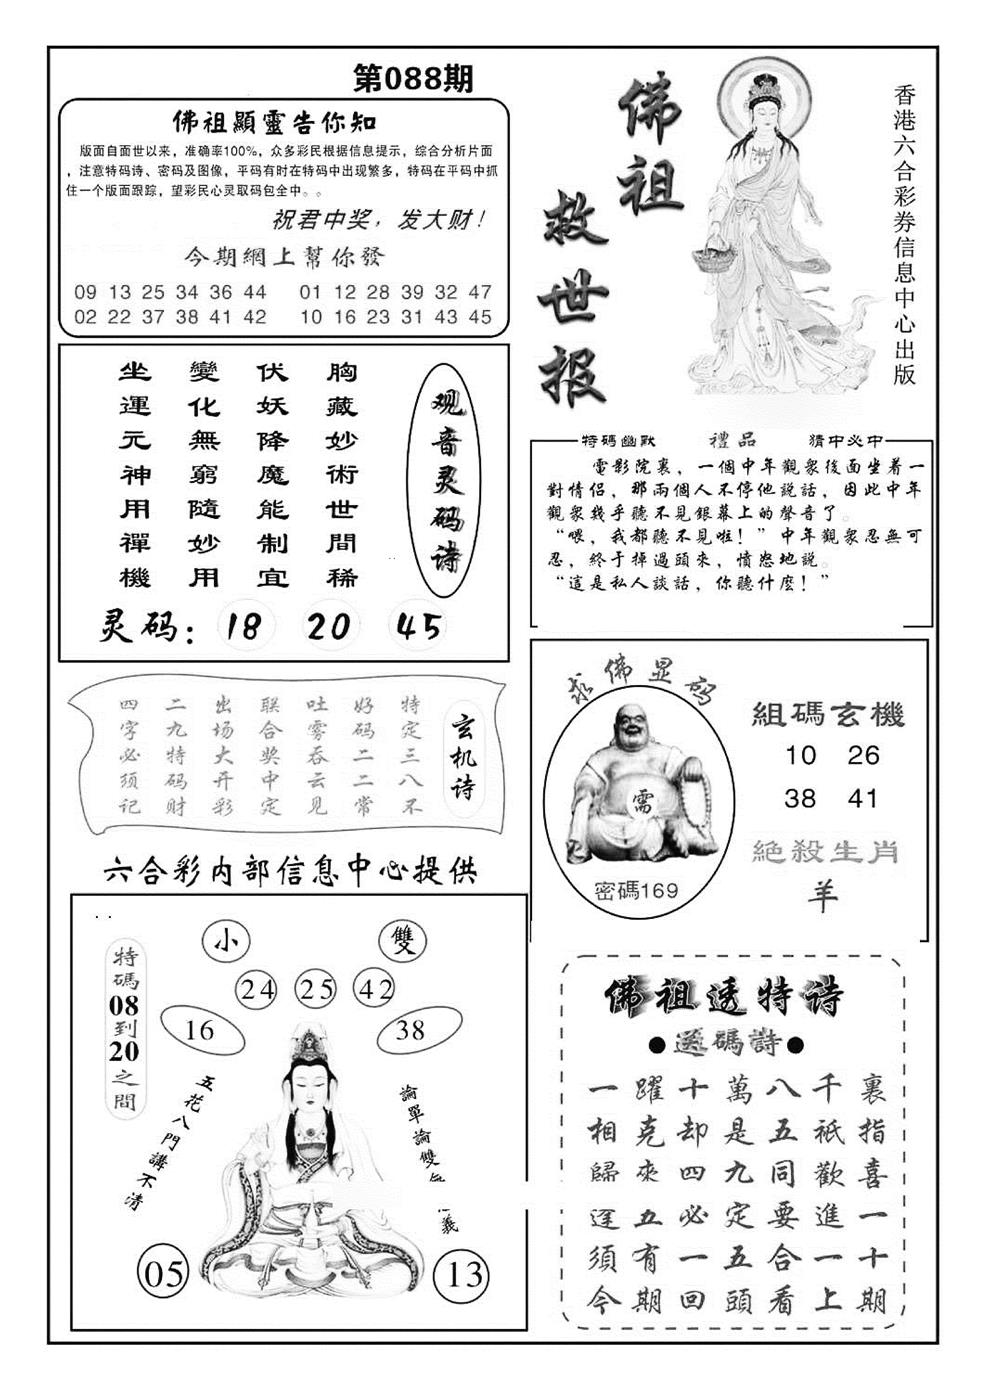 第088期
佛祖顯靈告你知
版面自面世以来，准确率100%，众多彩民根据信息提示，综合分析片面
，注意特码诗、密码及图像，平码有时在特码中出现繁多，特码在平码中抓
住一个版面跟踪，望彩民心灵取码包全中。。
祝君中奖，发大财！
今期網上幫你發
09 13 25 34 36 44 01 12 28 39 32 47
02 22 37 38 41 42 10 16 23 31 43 45
佛祖
救世报
香港六合彩券信息中心出版
观音灵码诗
胸藏妙術世間稀
伏妖降魔能制宜
變化無窮隨妙用
坐運元神用禪機
灵码：18 20 45
特碼幽默 禮品 猜中必中
電影院裏，一個中年觀衆後面坐着一
對情侶，那兩個人不停他説話，因此中年
觀衆幾乎聽不見銀幕上的聲音了。
“喂，我都聽不見啦！”中年觀衆忍無可
忍，終于掉過頭來，憤怒地説。
“這是私人談話，你聽什麽！”
玄机诗
特定三八不
好码二二常
吐雾吞云见
联合奖中定
出场大开彩
二九特码财
四字必须记
求佛显码
需
密碼169
組碼玄機
10 26
38 41
絶殺生肖
羊
六合彩内部信息中心提供
小 雙
24 25 42
16 38
特碼08到20之間
五花八門講不清
論單論雙
義
05 13
佛祖透特诗
●送碼詩●
一躍十萬八千裏
相克却是五衹指
歸來四九同歡喜
逕五必定要進一
須有一五合一十
今期回頭看上期